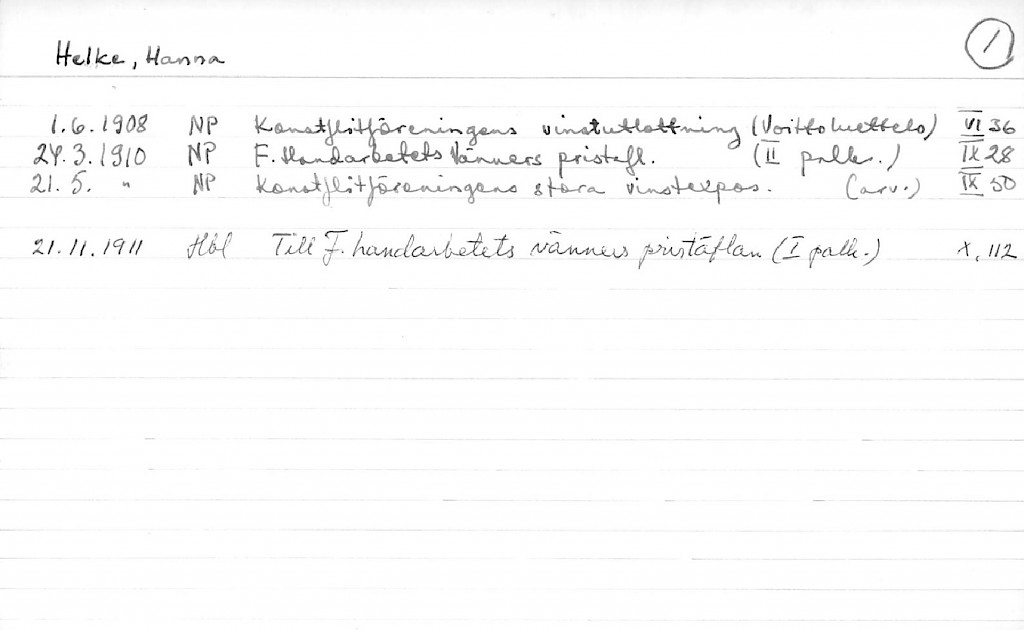 Helke, Hanna
1
1.6.1908 NP Konstflitföreningens vinstutlottning (Voittoluettelo) VI 36
24.3.1910 NP F. Handarbetets Vänners pristäfl. (II palk.) IX 28
21.5. " NP Konstflitföreningens stora vinstexpos. (arv.) IX 50
21.11.1911 Hbl Till F. handarbetets vänners pristäflan (I palk.) X, 112